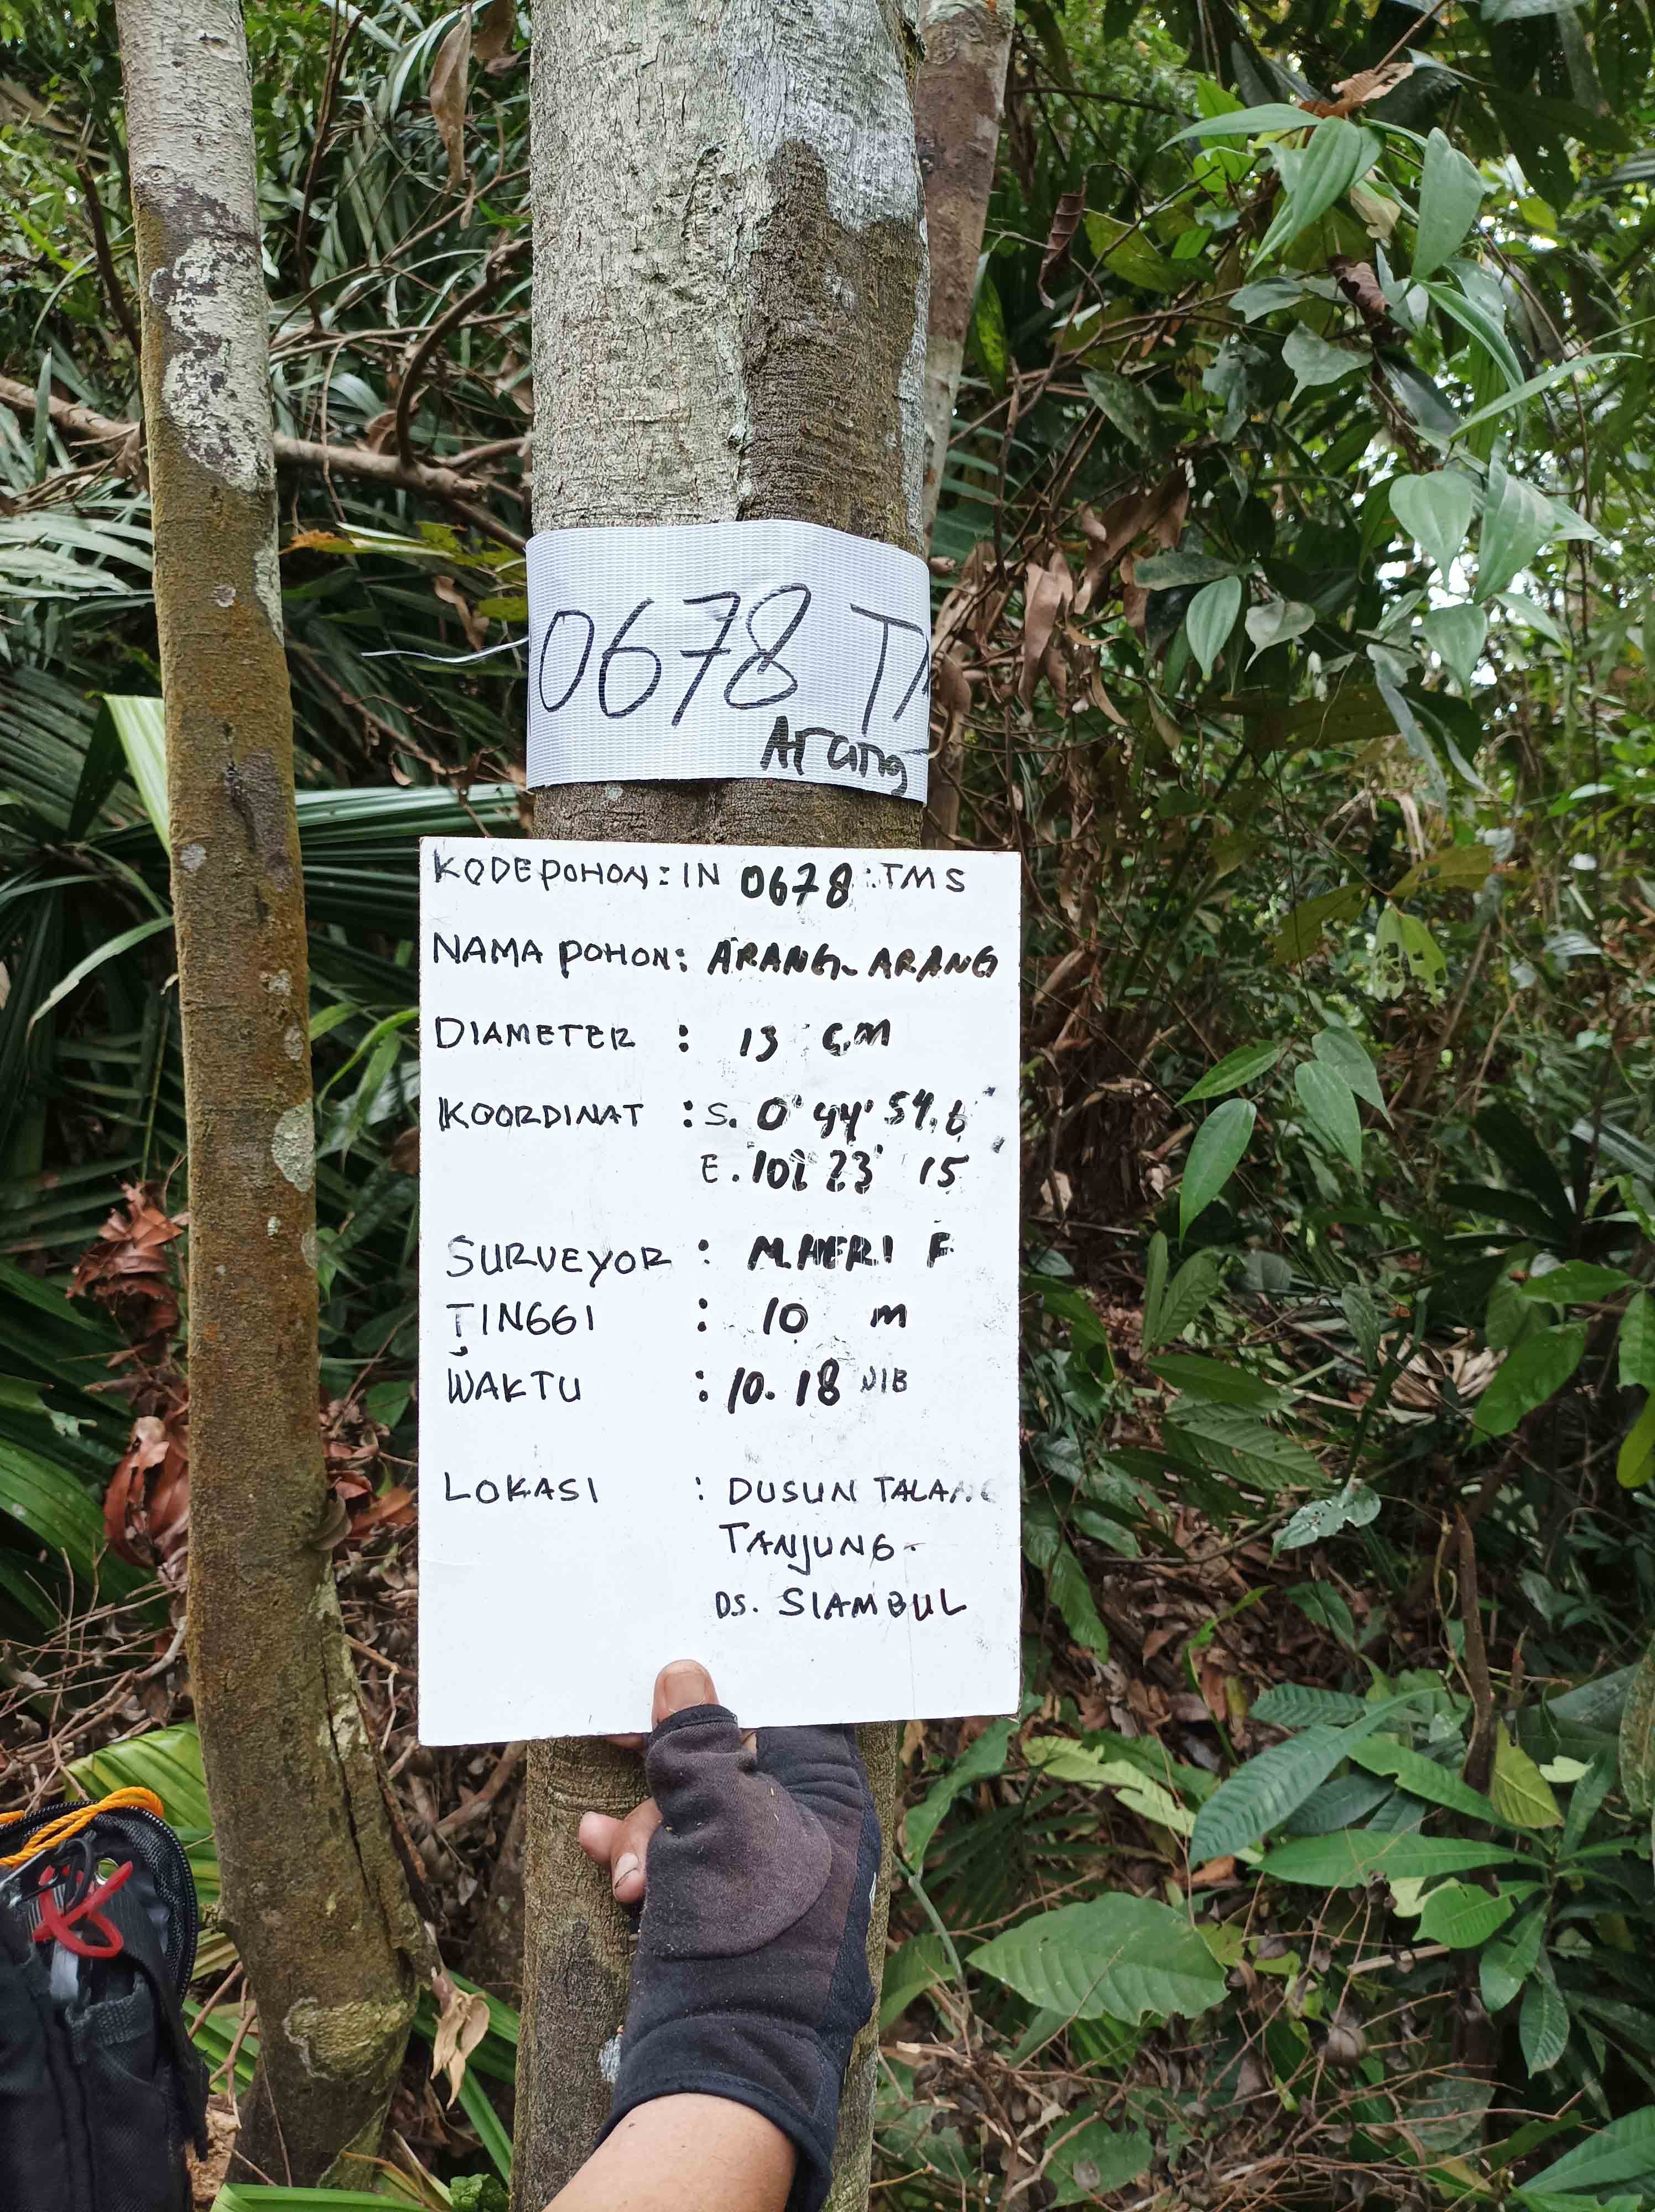 0678 TM
Arang
KODE POHON : IN 0678 : TMS
NAMA POHON : ARANG-ARANG
DIAMETER : 13 CM
KOORDINAT : S. 0° 44' 54,6"
E. 102 23' 15
SURVEYOR : M.HERI F
TINGGI : 10 m
WAKTU : 10.18 WIB
LOKASI : DUSUN TALANG
TANJUNG
DS. SIAMBUL